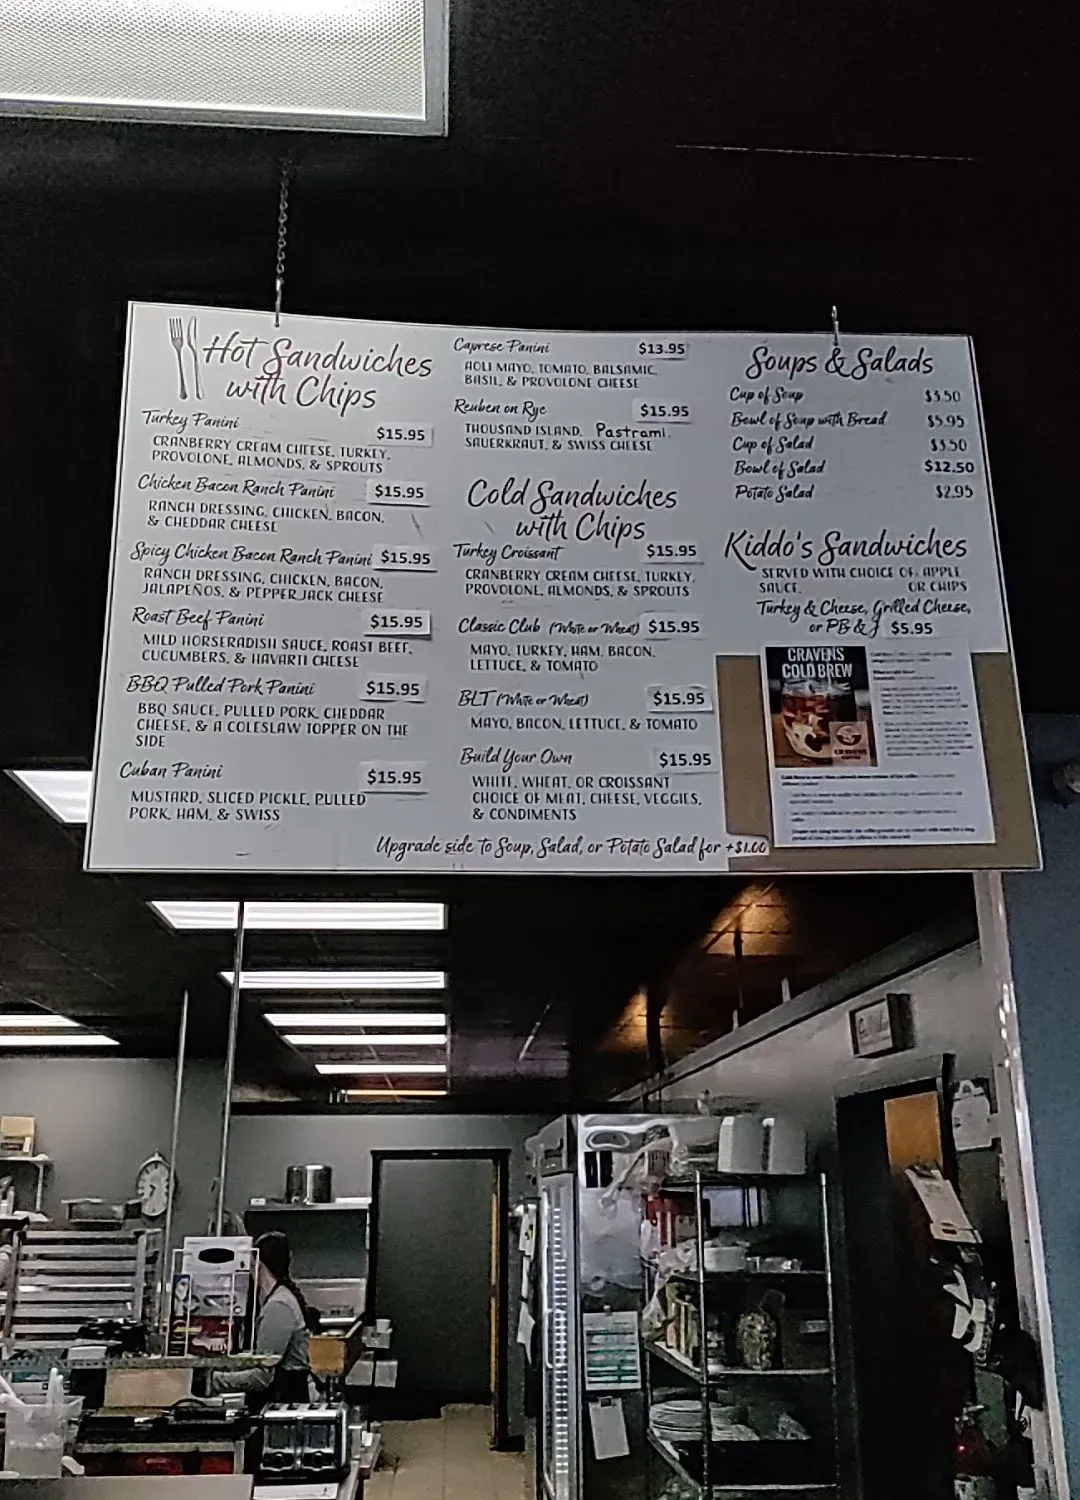 Hot Sandwiches
with Chips
Turkey Panini $15.95
CRANBERRY CREAM CHEESE, TURKEY,
PROVOLONE, ALMONDS, & SPROUTS
Chicken Bacon Ranch Panini $15.95
RANCH DRESSING, CHICKEN, BACON,
& CHEDDAR CHEESE
Spicy Chicken Bacon Ranch Panini $15.95
RANCH DRESSING, CHICKEN, BACON,
JALAPEÑOS, & PEPPER JACK CHEESE
Roast Beef Panini $15.95
MILD HORSERADISH SAUCE, ROAST BEEF,
CUCUMBERS, & HAVARTI CHEESE
BBQ Pulled Pork Panini $15.95
BBQ SAUCE, PULLED PORK, CHEDDAR
CHEESE, & A COLESLAW TOPPER ON THE
SIDE
Cuban Panini $15.95
MUSTARD, SLICED PICKLE, PULLED
PORK, HAM, & SWISS
Caprese Panini $13.95
AOLI MAYO, TOMATO, BALSAMIC,
BASIL, & PROVOLONE CHEESE
Reuben on Rye $15.95
THOUSAND ISLAND, Pastrami,
SAUERKRAUT, & SWISS CHEESE
Cold Sandwiches
with Chips
Turkey Croissant $15.95
CRANBERRY CREAM CHEESE, TURKEY,
PROVOLONE, ALMONDS, & SPROUTS
Classic Club (White or Wheat) $15.95
MAYO, TURKEY, HAM, BACON,
LETTUCE, & TOMATO
BLT (White or Wheat) $15.95
MAYO, BACON, LETTUCE, & TOMATO
Build Your Own $15.95
WHITE, WHEAT, OR CROISSANT
CHOICE OF MEAT, CHEESE, VEGGIES,
& CONDIMENTS
Upgrade side to Soup, Salad, or Potato Salad for +$1.00
Soups & Salads
Cup of Soup $3.50
Bowl of Soup with Bread $5.95
Cup of Salad $3.50
Bowl of Salad $12.50
Potato Salad $2.95
Kiddo's Sandwiches
SERVED WITH CHOICE OF APPLE
SAUCE, OR CHIPS
Turkey & Cheese, Grilled Cheese,
or PB & J $5.95
CRAVENS
COLD BREW
CRAVENS